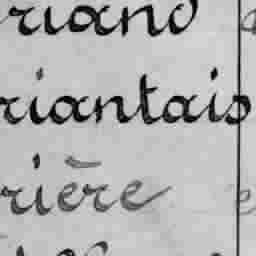 riand
riantais
rière